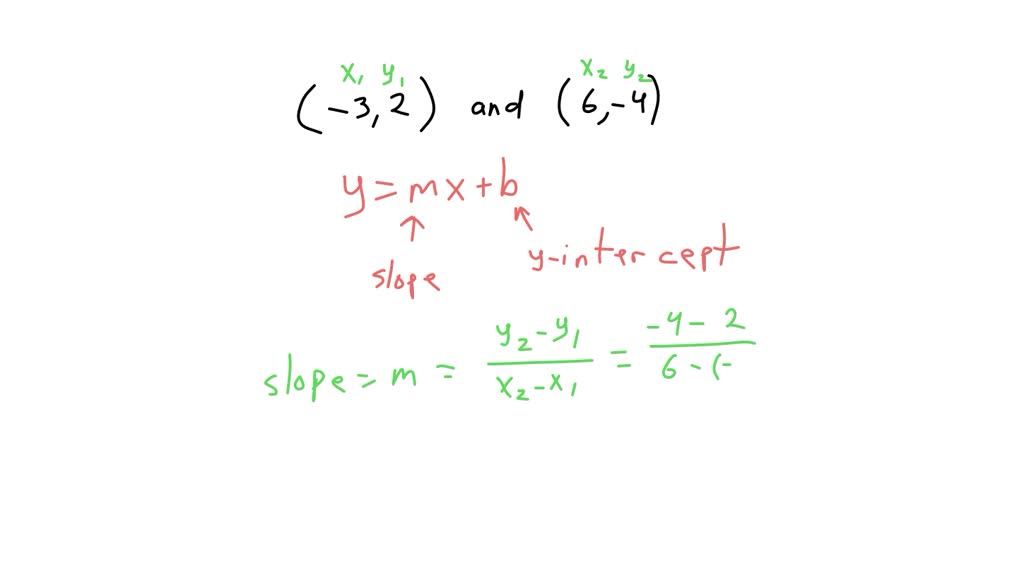 x₁ y₁ x₂ y₂
(-3, 2) and (6, -4)
y = mx + b
↑ ↖
slope y-intercept
slope = m = y₂-y₁ / x₂-x₁ = -4 - 2 / 6 - (-